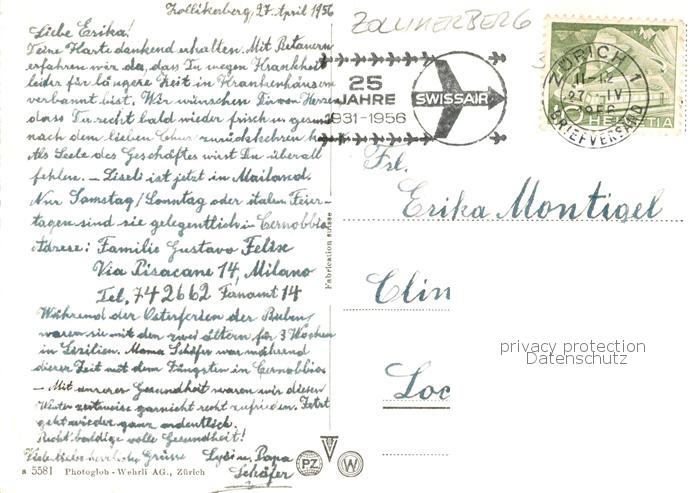 Zollikerberg, 27. April 1956
ZOLLIKERBERG
Liebe Erika!
Deine Karte dankend erhalten. Mit Bedauern
erfahren wir da, dass Du wegen Krankheit
leider für längere Zeit in Krankenhäusern
verbannt bist. Wir wünschen Dir von Herzen
dass Du recht bald wieder frisch u. gesund
nach dem lieben Chur zurückkehren
Als Seele des Geschäftes wirst Du überall
fehlen. – Liseli ist jetzt in Mailand.
Nur Samstag/Sonntag oder italien Feier-
tagen sind sie gelegentlich in Cernobbio
Adresse: Familie Gustavo Felix
Via Pisacane 14, Milano
Tel. 742662
Während der Osterferien der Buben,
waren sie mit den zwei ältern für 3 Wochen
in Sizilien. Mama Schäfer war während
dieser Zeit mit dem Jüngsten in Cernobbio
– Mit unserer Gesundheit waren wir diesen
Winter zeitweise garnicht recht zufrieden. Jetzt
geht wieder ganz ordentlich.
Recht baldige volle Gesundheit!
herzliche Grüsse Papa
Schäfer
a 5581 Photoglob-Wehrli AG., Zürich
Fabrication suisse
PZ
W
25
JAHRE
1931-1956
SWISSAIR
ZÜRICH 1
11-12
BRIEFVERSAND
HELVETIA
Frl.
Erika Montigel
Clin
Loc
privacy protection
Datenschutz